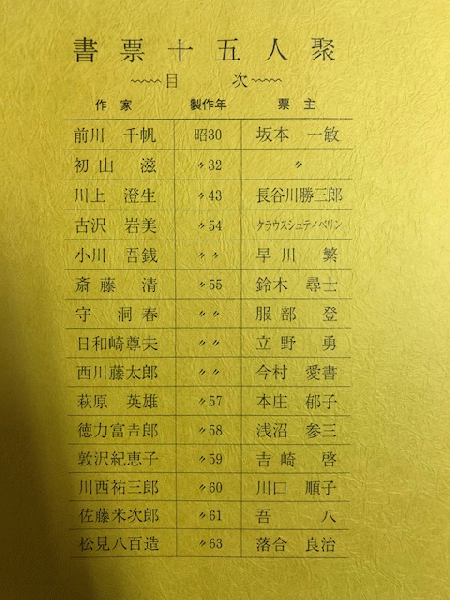 書票十五人聚
目次
作家 製作年 票主
前川 千帆 昭30 坂本 一敏
初山 滋 〃32 〃
川上 澄生 〃43 長谷川勝三郎
古沢 岩美 〃54 クラウスシュテノベリン
小川 吾銭 〃〃 早川 繁
斎藤 清 〃55 鈴木 尋士
守 洞春 〃〃 服部 登
日和崎尊夫 〃〃 立野 勇
西川藤太郎 〃〃 今村 愛書
萩原 英雄 〃57 本庄 郁子
徳力富吉郎 〃58 浅沼 参三
敦沢紀恵子 〃59 吉崎 啓
川西祐三郎 〃60 川口 順子
佐藤米次郎 〃61 吾八
松見八百造 〃63 落合 良治